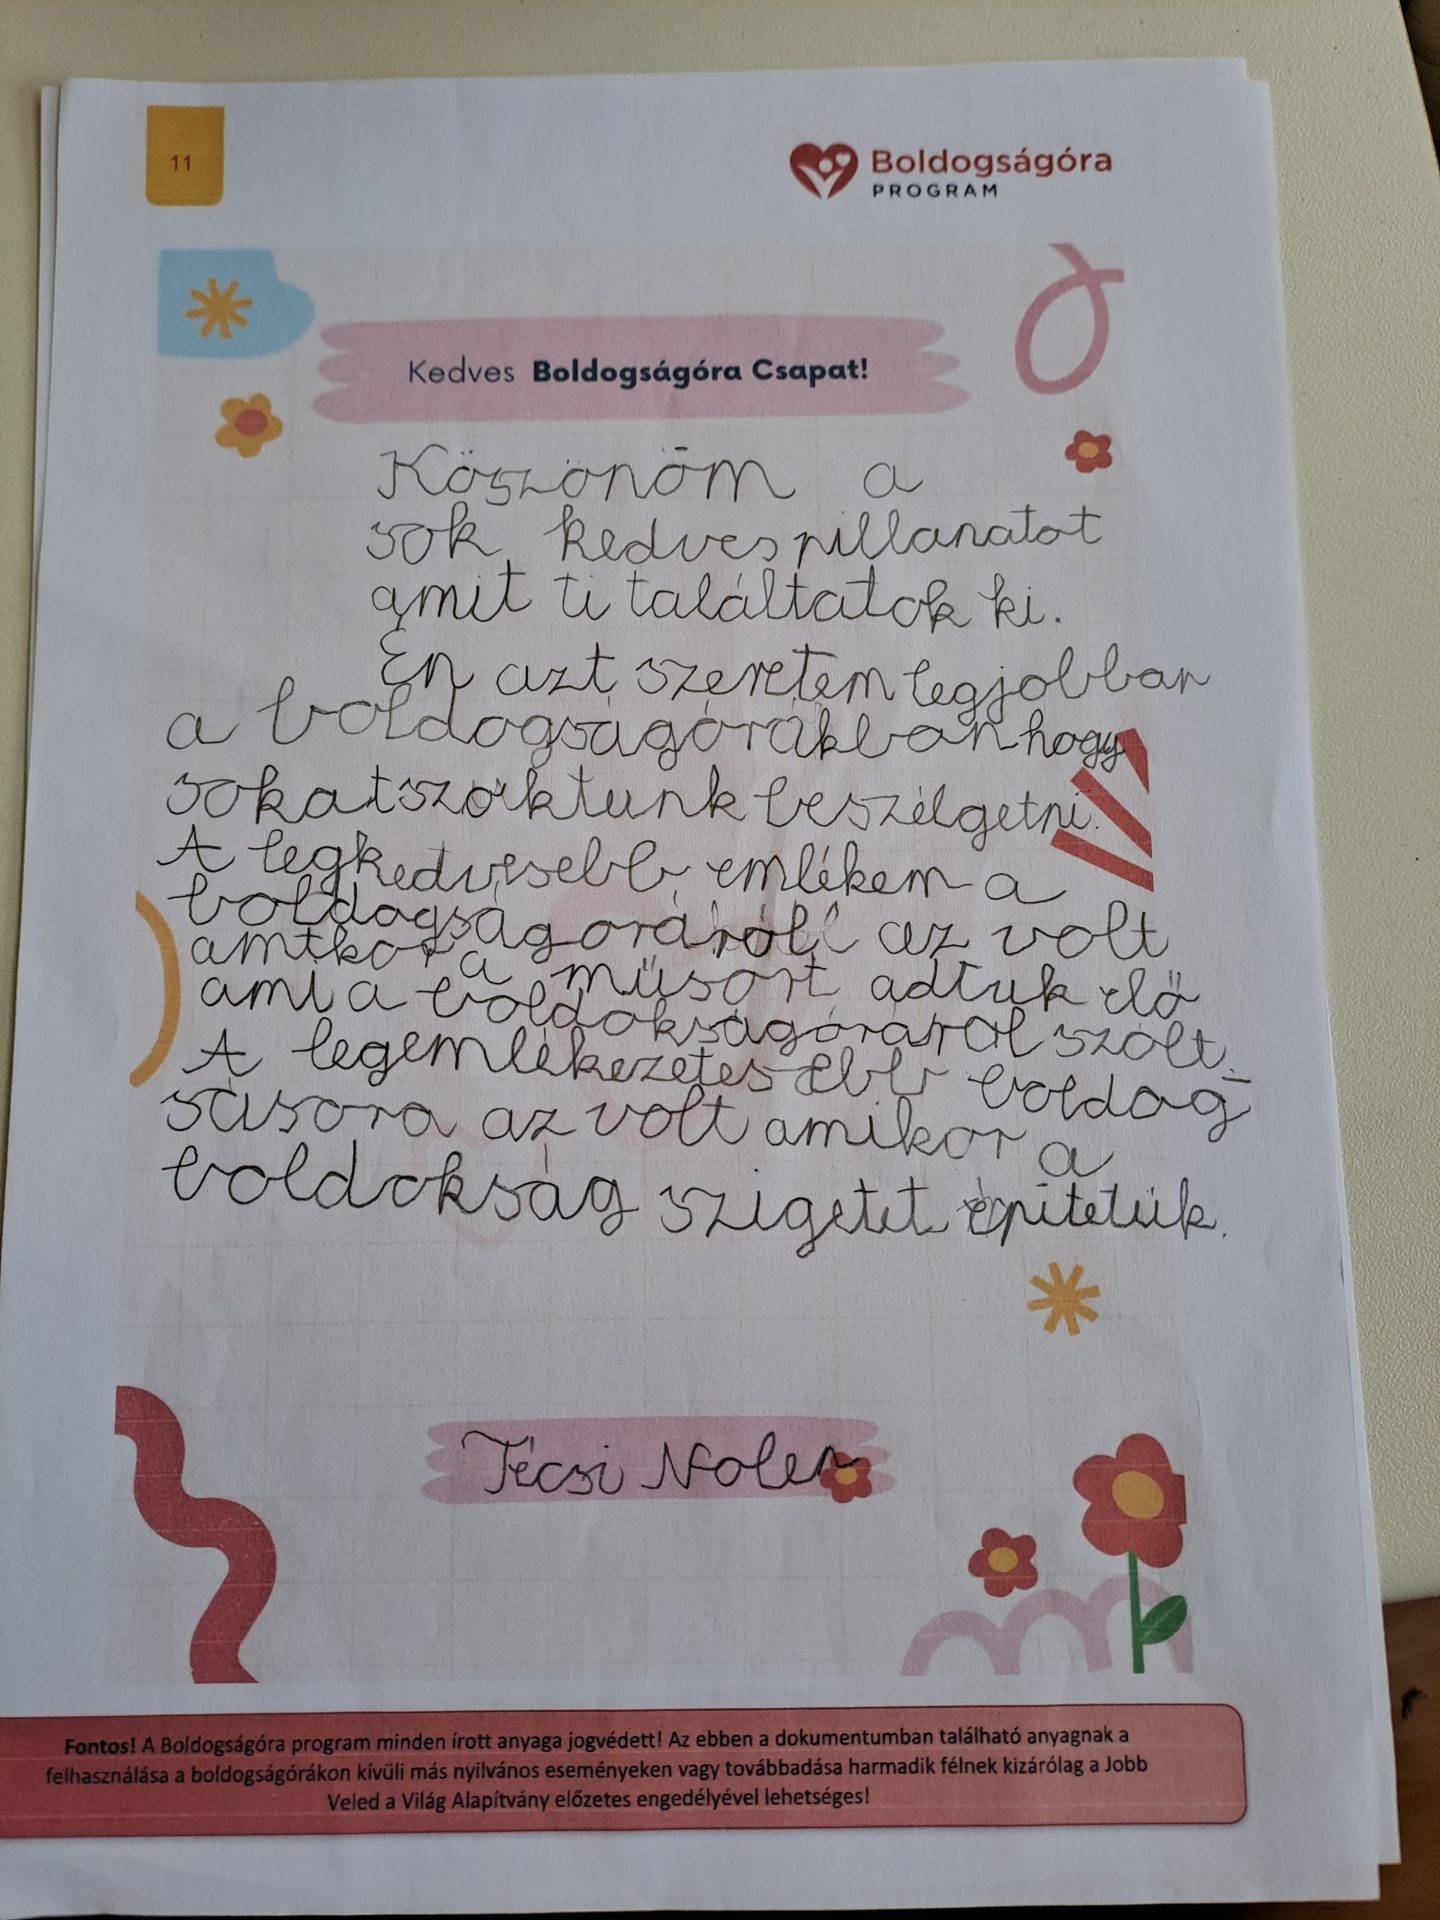 11
Boldogságóra
PROGRAM
Kedves Boldogságóra Csapat!
Köszönöm a
sok kedves pillanatot
amit ti találtatok ki.
Én azt szeretem legjobban
a boldogságórákban hogy
sokat szoktunk beszélgetni.
A legkedvesebb emlékem a
boldogságoráról az volt
amikor a műsort adtuk elő
ami a boldokságóráról szólt.
A legemlékezetesebb boldog-
sásora az volt amikor a
boldokság szigetet épitetük.
Técsi Nolen
Fontos! A Boldogságóra program minden írott anyaga jogvédett! Az ebben a dokumentumban található anyagnak a
felhasználása a boldogságórákon kívüli más nyilvános eseményeken vagy továbbadása harmadik félnek kizárólag a Jobb
Veled a Világ Alapítvány előzetes engedélyével lehetséges!